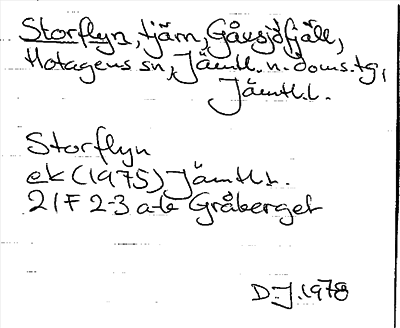 Storflyn, tjärn, Gåusjöfjäll,
Hotagens sn, Jämtl. n. doms.tg,
Jämtl.l.
Storflyn
ek (1975) Jämtl.l.
21F 2-3 a-b Gråberget
D.J. 1978